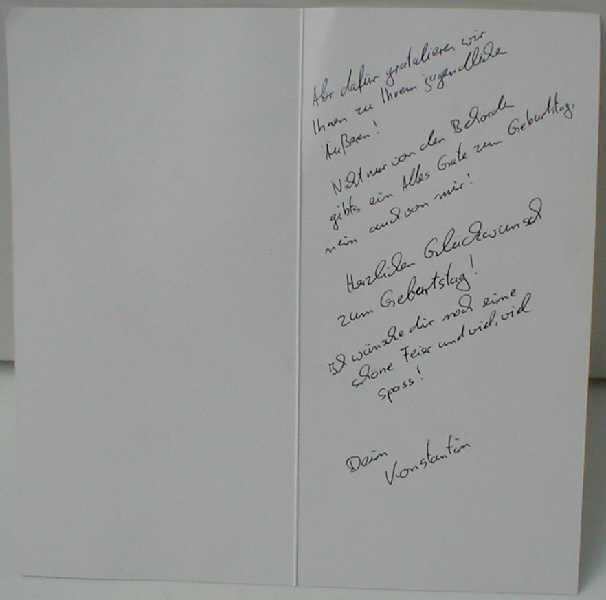 Aber dafür gratulieren wir
Ihnen zu Ihrem jugendlichen
Äußeren!
Nicht nur von den Behörden
gibts ein Alles Gute zum Geburtstag,
nein auch von mir!
Herzlichen Glückwunsch
zum Geburtstag!
Ich wünsche dir noch eine
schöne Feier und viel, viel
spass!
Dein
Konstantin